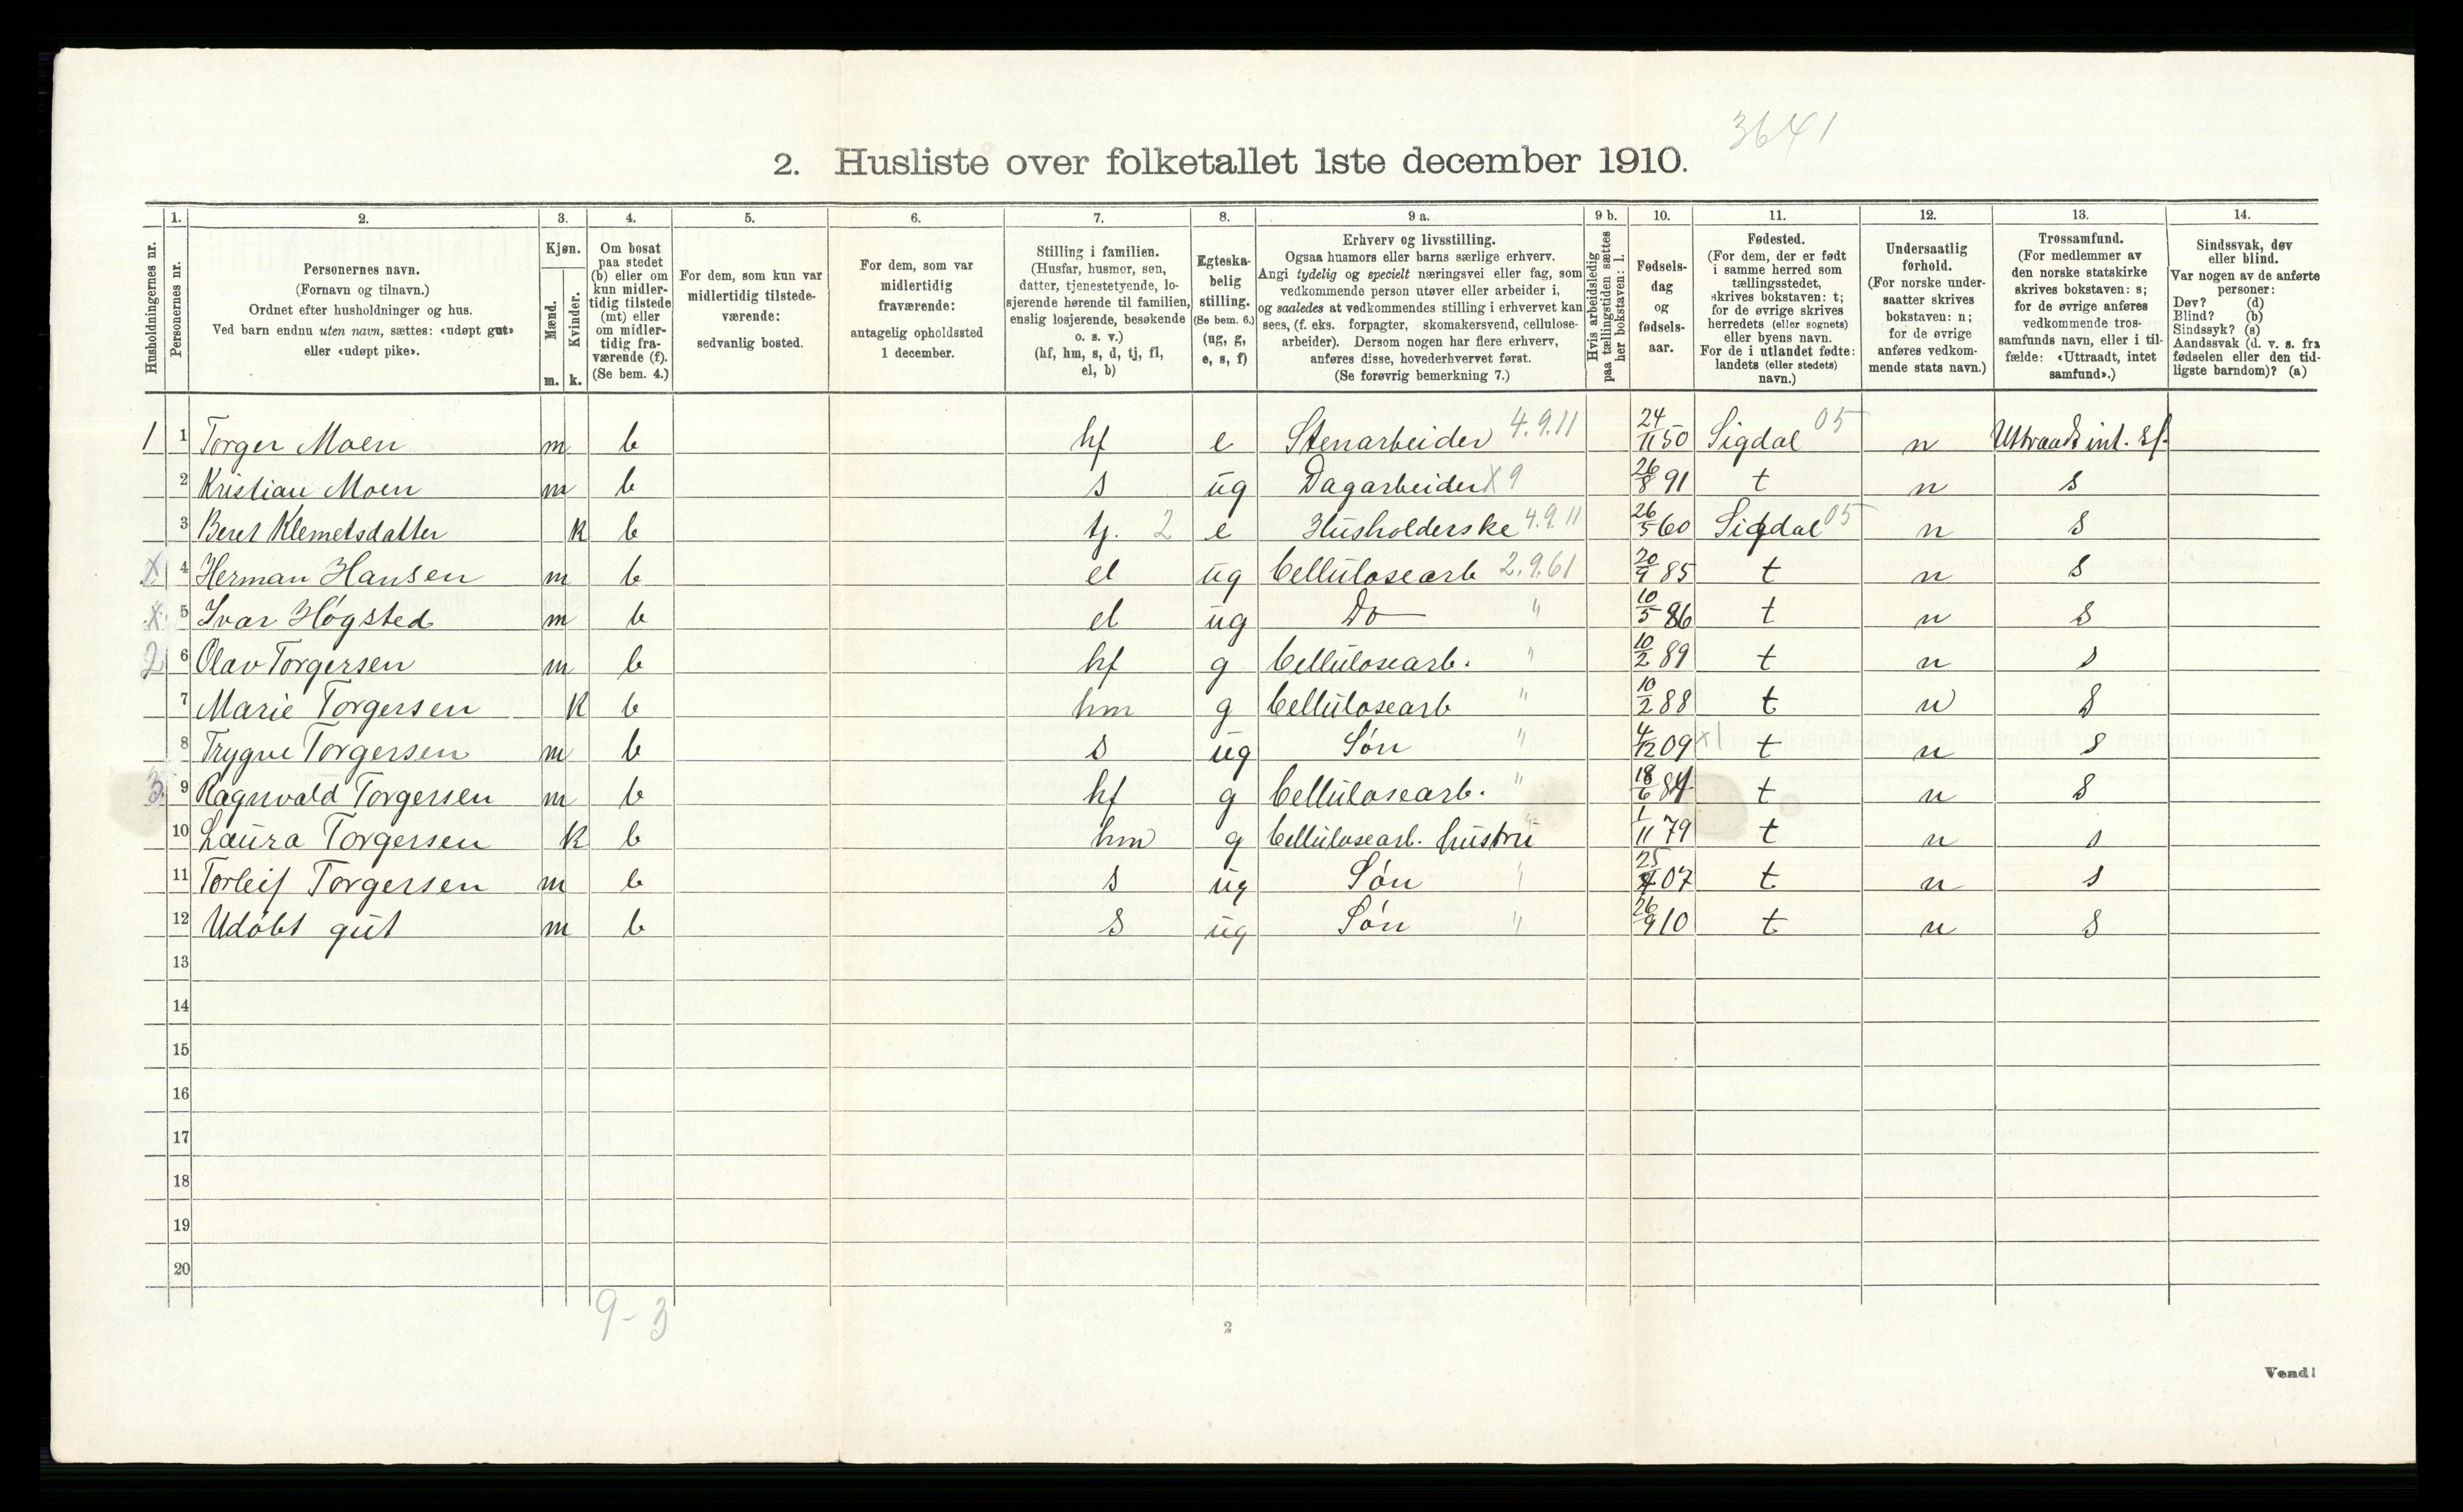 3641
2. Husliste over folketallet 1ste december 1910.
Husholdningernes nr.
1. Personernes nr.
2. Personernes navn.
(Fornavn og tilnavn.)
Ordnet efter husholdninger og hus.
Ved barn endnu uten navn, sættes: «udøpt gut»
eller «udøpt pike».
3. Kjøn.
Mænd. m.
Kvinder. k.
4. Om bosat
paa stedet
(b) eller om
kun midler-
tidig tilstede
(mt) eller
om midler-
tidig fra-
værende (f).
(Se bem. 4.)
5. For dem, som kun var
midlertidig tilstede-
værende:
sedvanlig bosted.
6. For dem, som var
midlertidig
fraværende:
antagelig opholdssted
1 december.
7. Stilling i familien.
(Husfar, husmor, søn,
datter, tjenestetyende, lo-
sjerende hørende til familien,
enslig losjerende, besøkende
o. s. v.)
(hf, hm, s, d, tj, fl,
el, b)
8. Egteska-
belig
stilling.
(Se bem. 6.)
(ug, g,
e, s, f)
9 a. Erhverv og livsstilling.
Ogsaa husmors eller barns særlige erhverv.
Angi tydelig og specielt næringsvei eller fag, som
vedkommende person utøver eller arbeider i,
og saaledes at vedkommendes stilling i erhvervet kan
sees, (f. eks. forpagter, skomakersvend, cellulose-
arbeider). Dersom nogen har flere erhverv,
anføres disse, hovederhvervet først.
(Se forøvrig bemerkning 7.)
9 b. Hvis arbeidsledig
paa tællingstiden sættes
her bokstaven: l.
10. Fødsels-
dag
og
fødsels-
aar.
11. Fødested.
(For dem, der er født
i samme herred som
tællingsstedet,
skrives bokstaven: t;
for de øvrige skrives
herredets (eller sognets)
eller byens navn.
For de i utlandet fødte:
landets (eller stedets)
navn.)
12. Undersaatlig
forhold.
(For norske under-
saatter skrives
bokstaven: n;
for de øvrige
anføres vedkom-
mende stats navn.)
13. Trossamfund.
(For medlemmer av
den norske statskirke
skrives bokstaven: s;
for de øvrige anføres
vedkommende tros-
samfunds navn, eller i til-
fælde: «Uttraadt, intet
samfund».)
14. Sindssvak, døv
eller blind.
Var nogen av de anførte
personer:
Døv? (d)
Blind? (b)
Sindssyk? (s)
Aandssvak (d. v. s. fra
fødselen eller den tid-
ligste barndom)? (a)
1 1 Torger Moen m b hf e Stenarbeider 4.9.11 24/11 50 Sigdal 05 n Uttraadt int. sf.
2 Kristian Moen m b s ug Dagarbeider X9 26/8 91 t n s
3 Beret Klemetsdatter k b tj. 2 e Husholderske 4.9.11 26/5 60 Sigdal 05 n s
x 4 Herman Hansen m b el ug Cellulosearb 2.9.61 20/9 85 t n s
x 5 Ivar Høgsted m b el ug Do " 10/5 86 t n s
2 6 Olav Torgersen m b hf g Cellulosearb. " 10/2 89 t n s
7 Marie Torgersen k b hm g Cellulosearb " 10/2 88 t n s
8 Trygve Torgersen m b s ug Søn " 4/12 09 x1 t n s
3 9 Ragnvald Torgersen m b hf g Cellulosearb. " 18/6 84 t n s
10 Laura Torgersen k b hm g Cellulosearb. hustru 1/11 79 t n s
11 Torleif Torgersen m b s ug Søn " 25/ 07 t n s
12 Udøbt gut m b s ug Søn " 26/9 10 t n s
13
14
15
16
17
18
19
20
9-3
2
Vend!